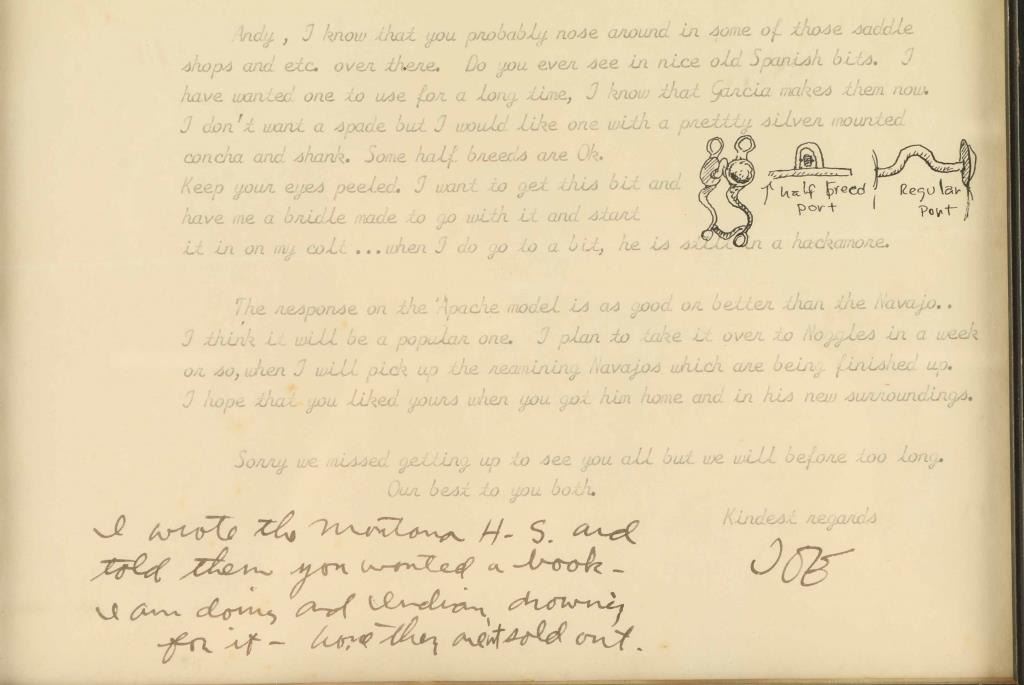 Andy, I know that you probably nose around in some of those saddle
shops and etc. over there. Do you ever see in nice old Spanish bits. I
have wanted one to use for a long time, I know that Garcia makes them now.
I don't want a spade but I would like one with a prettty silver mounted
concha and shank. Some half breeds are Ok.
Keep your eyes peeled. I want to get this bit and
have me a bridle made to go with it and start
it in on my colt ...when I do go to a bit, he is still in a hackamore.
half breed
port
Regular
Port
The response on the Apache model is as good or better than the Navajo..
I think it will be a popular one. I plan to take it over to Noggles in a week
or so, when I will pick up the reamining Navajos which are being finished up.
I hope that you liked yours when you got him home and in his new surroundings.
Sorry we missed getting up to see you all but we will before too long.
Our best to you both.
Kindest regards
JOE
I wrote the Montana H-S. and
told them you wanted a book -
I am doing and Indian drawing
for it - hope they aren't sold out.